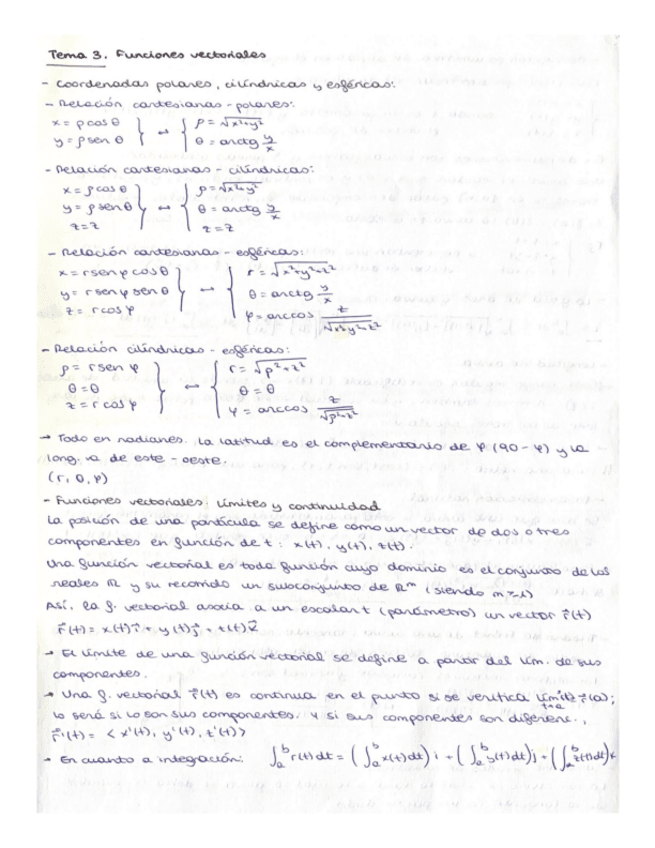 Tema 3. Funciones vectoriales
- Coordenadas polares, cilíndricas y esféricas:
- Relación cartesianas - polares:
x = ρ cos θ } ↔ { ρ = √x²+y²
y = ρ sen θ θ = arctg y/x
- Relación cartesianas - cilíndricas:
x = ρ cos θ } ↔ { ρ = √x²+y²
y = ρ sen θ θ = arctg y/x
z = z z = z
- Relación cartesianas - esféricas:
x = r sen φ cos θ } ↔ { r = √x²+y²+z²
y = r sen φ sen θ θ = arctg y/x
z = r cos φ φ = arccos z/√x²+y²+z²
- Relación cilíndricas - esféricas:
ρ = r sen φ } ↔ { r = √ρ²+z²
θ = θ θ = θ
z = r cos φ φ = arccos z/√ρ²+z²
→ Todo en radianes. La latitud es el complementario de φ (90 - φ) y la
long. va de este - oeste.
(r, θ, φ)
- Funciones vectoriales. Límites y continuidad
La posición de una partícula se define como un vector de dos o tres
componentes en función de t: x(t), y(t), z(t).
Una función vectorial es toda función cuyo dominio es el conjunto de los
reales ℝ y su recorrido un subconjunto de ℝᵐ (siendo m>1)
Así, la f. vectorial asocia a un escalar t (parámetro) un vector r⃗(t)
r⃗(t) = x(t)i⃗ + y(t)j⃗ + z(t)k⃗
→ El límite de una función vectorial se define a partir del lím. de sus
componentes.
→ Una f. vectorial r⃗(t) es continua en el punto si se verifica lím t→a r⃗(a);
lo será si lo son sus componentes. Y si sus componentes son diferenc.,
r⃗'(t) = < x'(t), y'(t), z'(t) >
→ En cuanto a integración: ∫ₐᵇ r(t)dt = (∫ₐᵇ x(t)dt) i + (∫ₐᵇ y(t)dt) j + (∫ₐᵇ z(t)dt) k